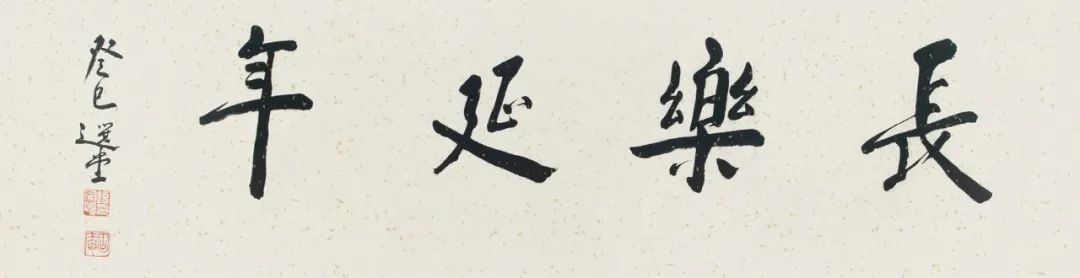 長樂延年
癸巳選堂